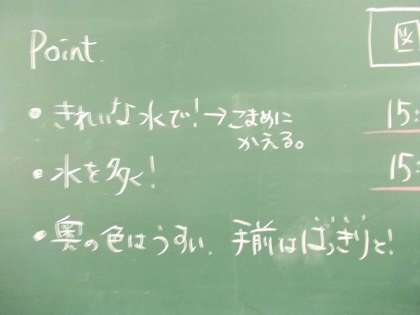 Point.
図
・きれいな水で!→こまめに
かえる。
15:
・水を多く!
15:
・奥の色はうすい. 手前ははっきりと!